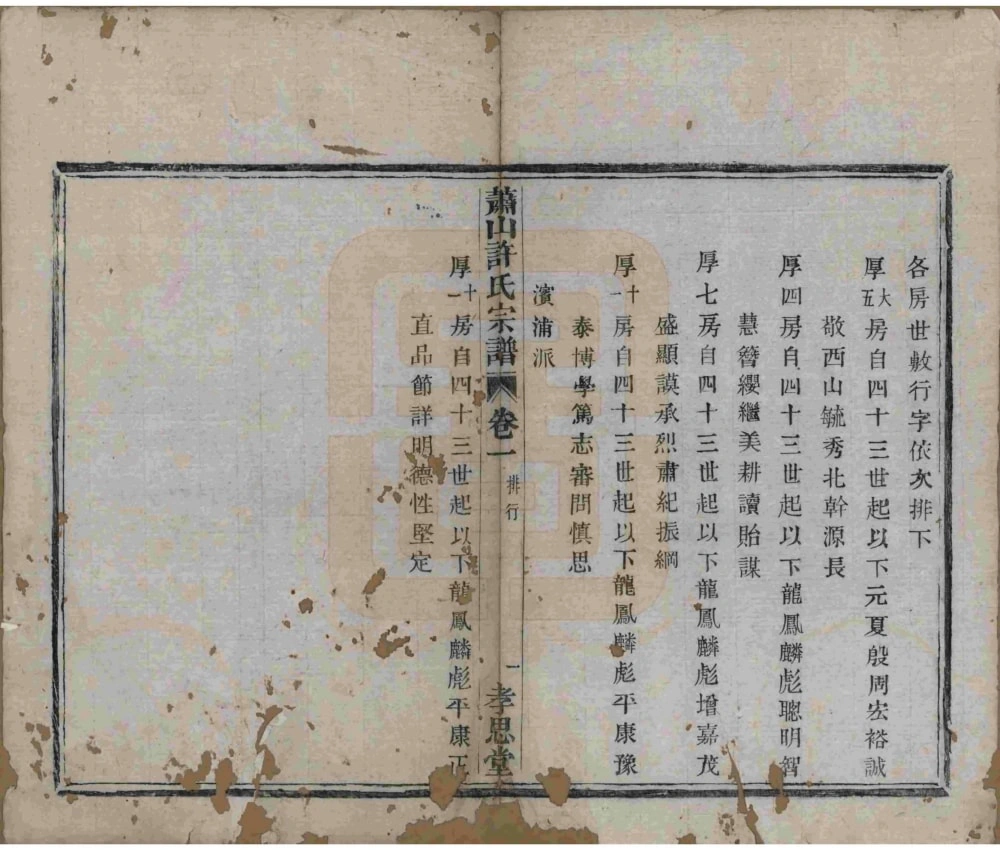 各房世數行字依次排下
厚大五房自四十三世起以下元夏殷周宏裕誠
敬西山毓秀北幹源長
厚四房自四十三世起以下龍鳳麟彪聰明智
慧簪纓繼美耕讀貽謀
厚七房自四十三世起以下龍鳳麟彪增嘉茂
盛顯謨承烈肅紀振綱
厚十一房自四十三世起以下龍鳳麟彪平康豫
泰博學篤志審問慎思
濱浦派
蕭山許氏宗譜 卷一 排行 一 孝思堂
厚十一房自四十三世起以下龍鳳麟彪平康正
直品節詳明德性堅定